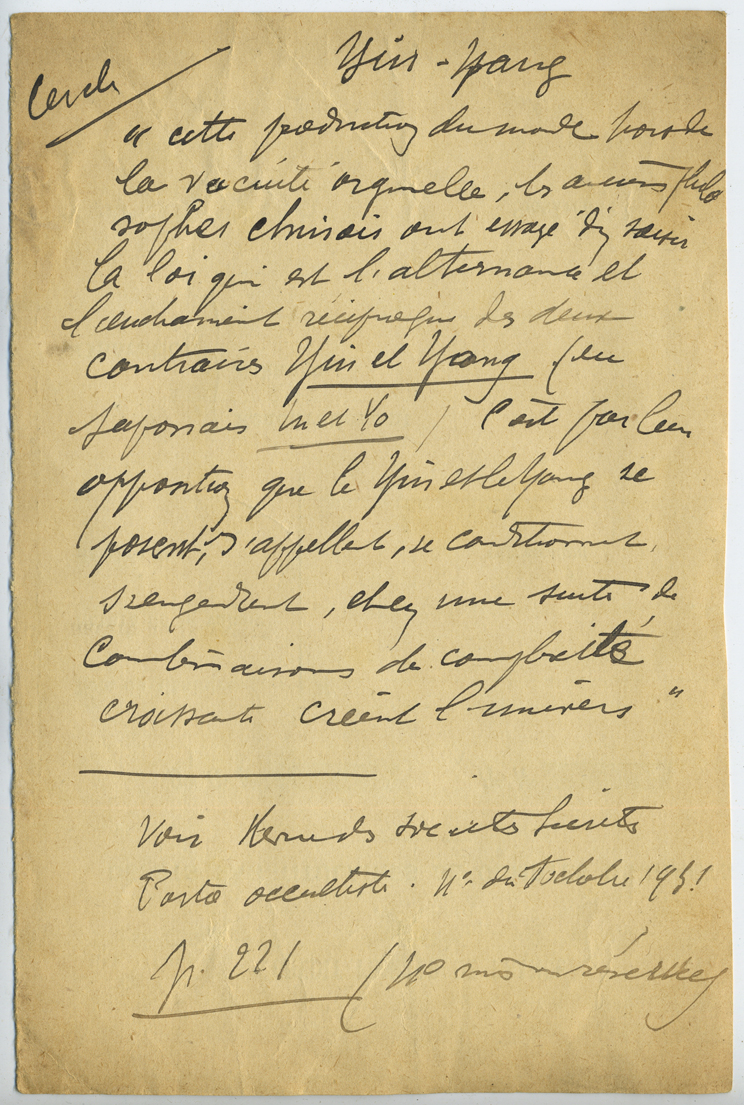 Cercle
Yin - Yang
" cette production du monde hors de
la vacuité originelle, les anciens philo
sophes chinois ont essayé d'en saisir
la loi qui est l'alternance et
l'enchainement réciproque des deux
contraires Yin et Yang (en
Japonais In et Yo) C'est par leur
opposition que le Yin et le Yang se
posent, s'appellent, se conditionnent,
s'engendrent, et en une suite de
combinaisons de complexités
croissante créent l'univers "
Voir Revue des sociétés secrètes
Partie occultiste. N° du 1 octobre 1931
p. 221 (N° mis en réserve)